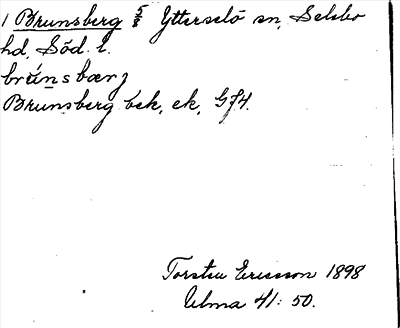 1 Brunsberg 5/8 Ytterselö sn, Selebo
hd, Söd. l.
brúnsbærj
Brunsberg bek, ek, Gf4.
Torsten Ericsson 1898
Ulma 41:50.